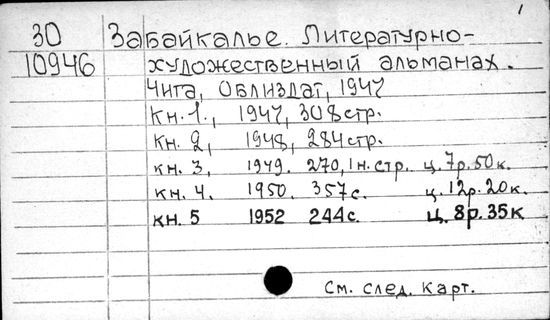 1
30 Забайкалье. Литературно-
10946 художественный альманах.
Чита, Облиздат, 1947
Кн. 1., 1947, 308 стр.
Кн. 2, 1948, 284 стр.
кн. 3, 1949. 270, 1 н. стр. ц. 7 р. 50 к.
кн. 4. 1950. 357 с. ц. 12 р. 20 к.
кн. 5 1952 244 с. ц. 8 р. 35 к
См. след. карт.